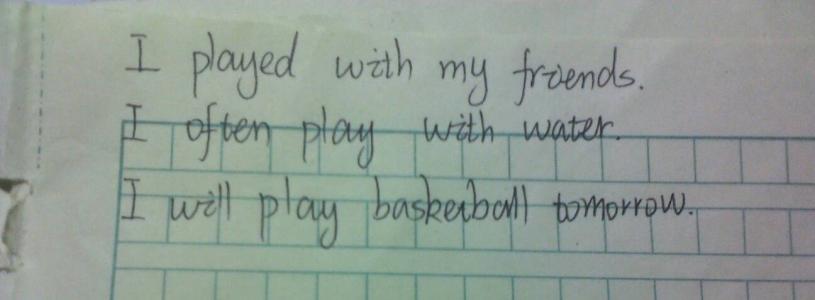 I played with my friends.
I often play with water.
I will play basketball tomorrow.